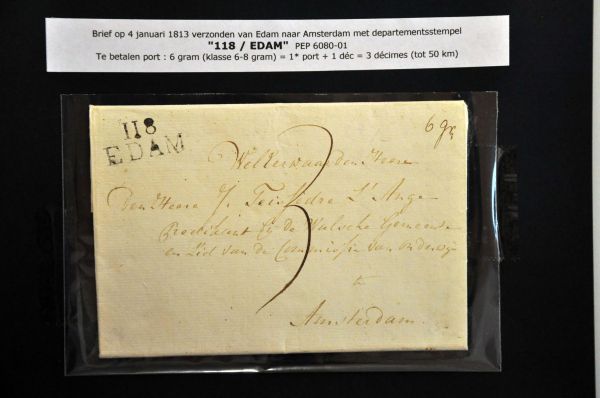 Brief op 4 januari 1813 verzonden van Edam naar Amsterdam met departementsstempel
"118 / EDAM" PEP 6080-01
Te betalen port : 6 gram (klasse 6-8 gram) = 1* port + 1 déc = 3 décimes (tot 50 km)
118
EDAM
6 gr
3
WelEerwaarden Heere
den Heere J. Teissedre L'Ange
Predikant bij de Walsche Gemeente
en Lid van de Commissie van onderwijs
te
Amsterdam